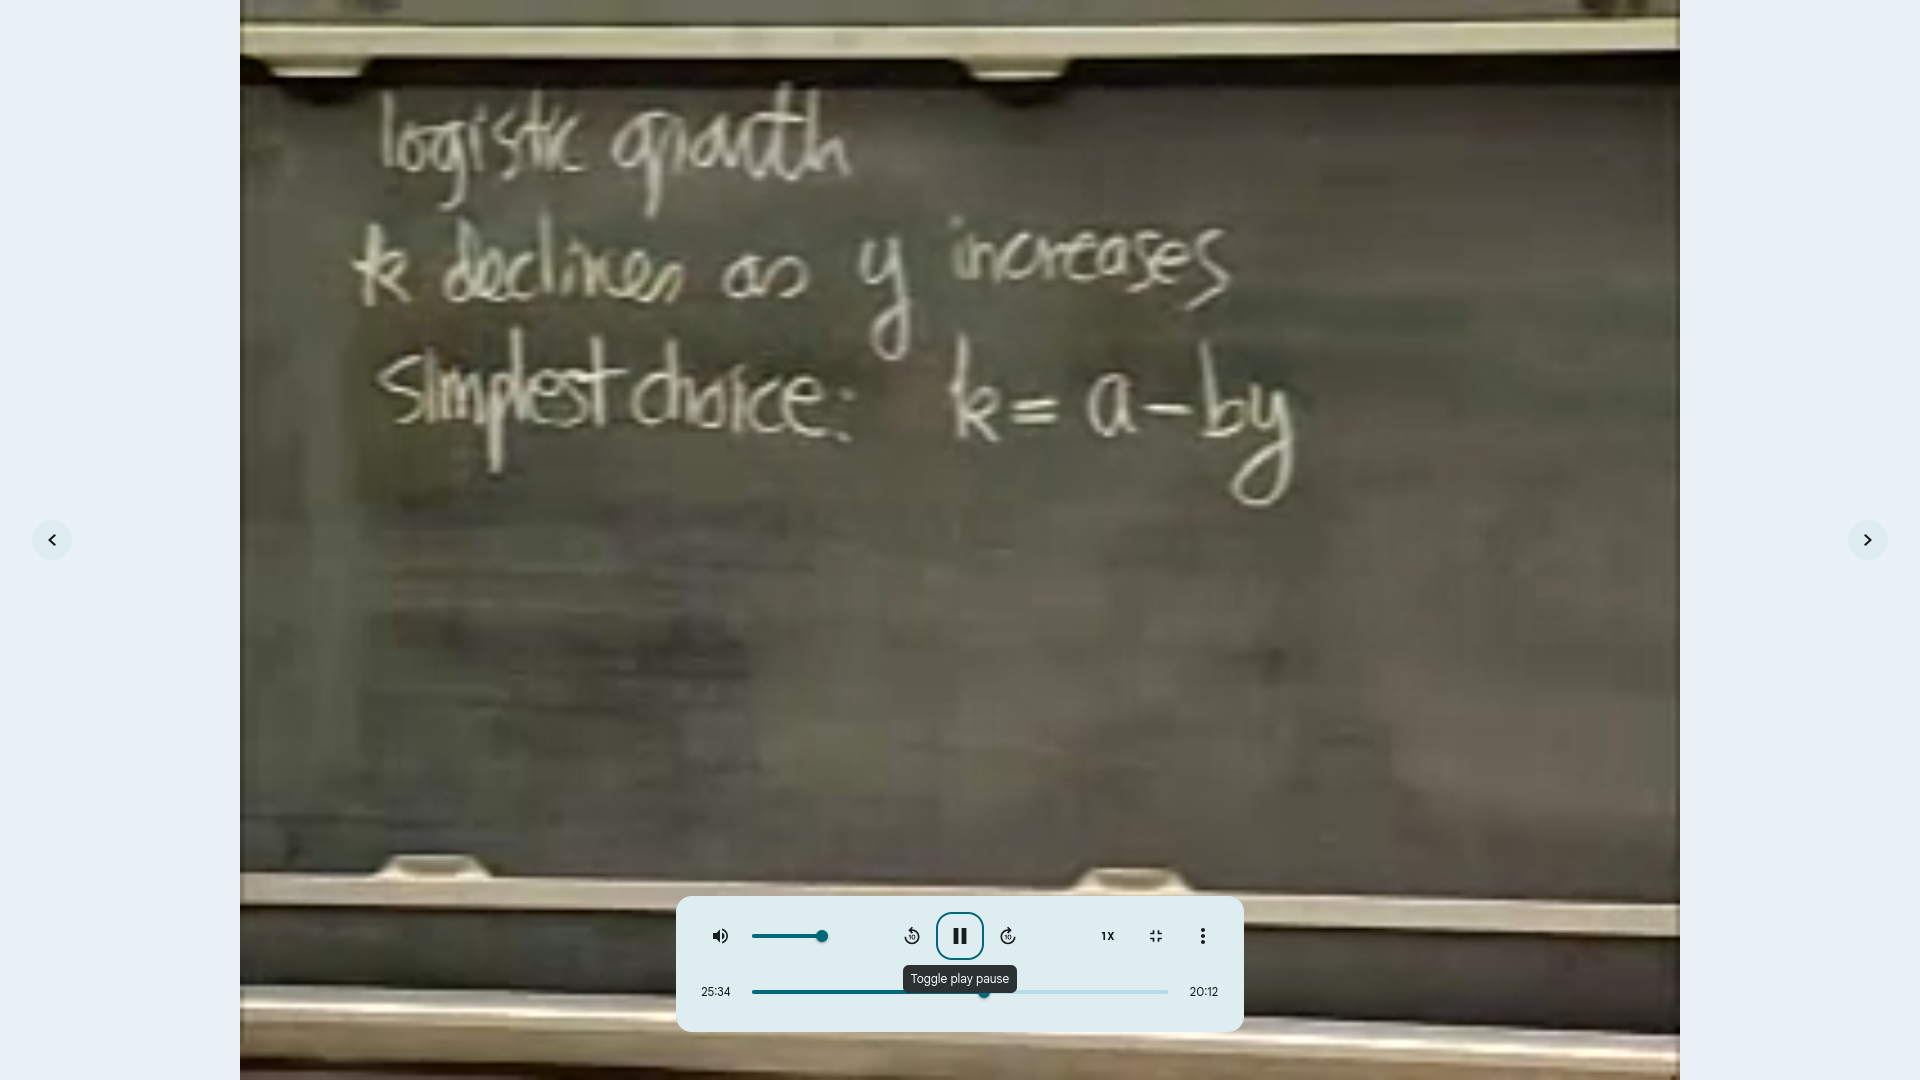 logistic growth
k declines as y increases
simplest choice: k = a - by
10
10
1X
Toggle play pause
25:34
20:12